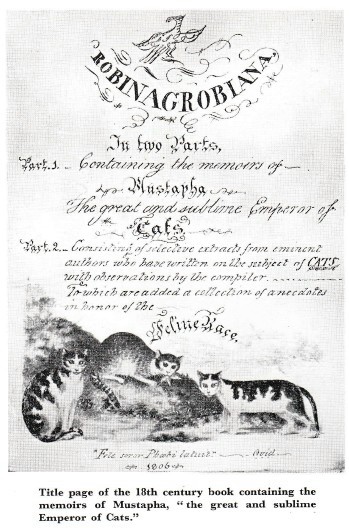 ROBINAGROBIANA,
In two Parts,
Part. 1. Containing the memoirs of
Mustapha
The great and sublime Emperor of
Cats
Part. 2. Consisting of selective extracts from eminent
authors who have written on the subject of CATS
with observations by the compiler.
To which are added a collection of anecdotes
in honor of the
Feline Race.
"Fele soror Phœbi latuit." Ovid.
1806
Title page of the 18th century book containing the
memoirs of Mustapha, "the great and sublime
Emperor of Cats."